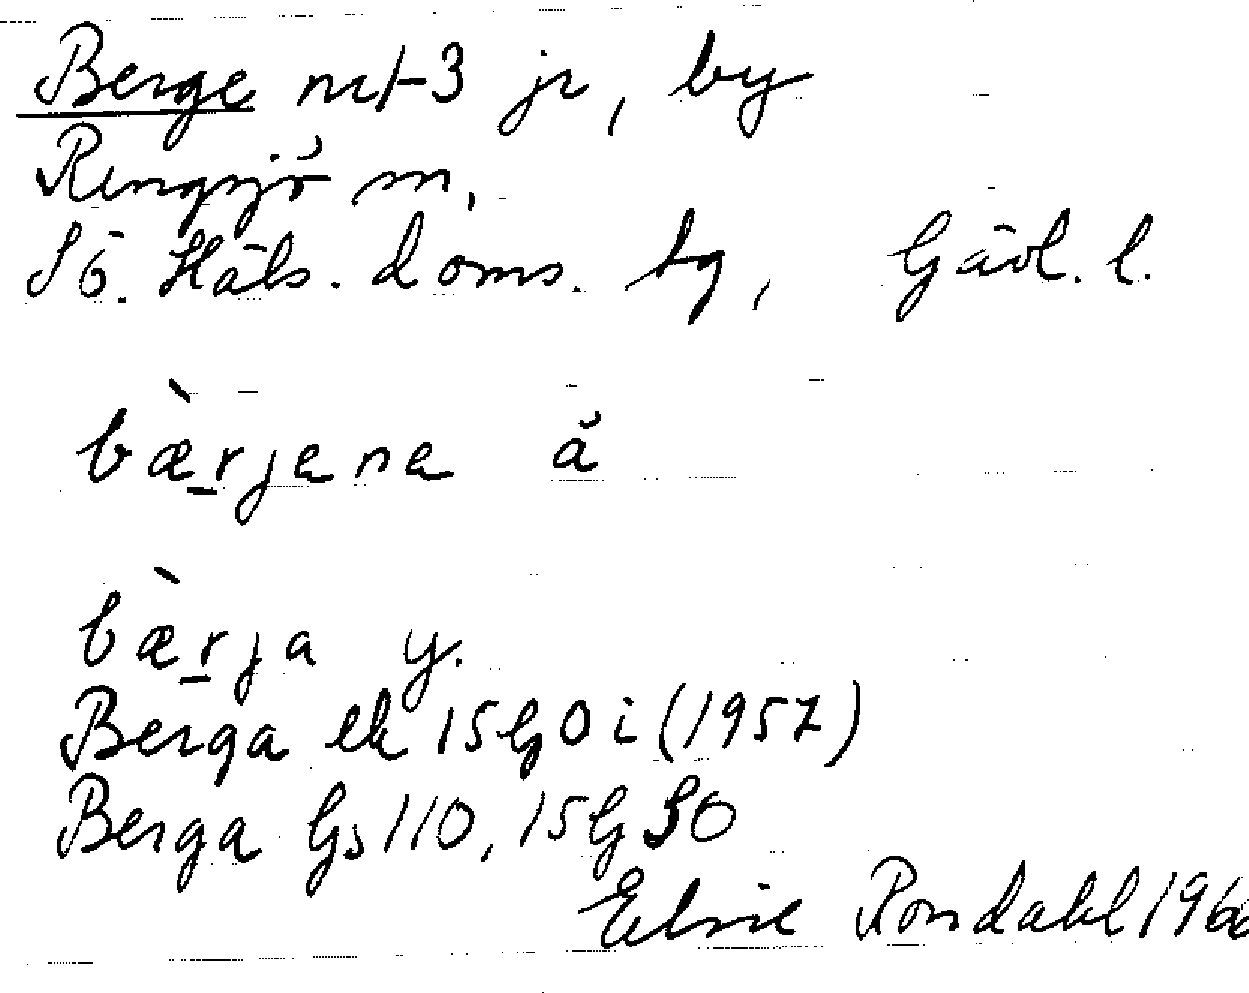 Berge nr 1-3 jr, by
Rengsjö sn,
Sö. Häls. doms. tg, Gävl. l.
bæ̀rjena å
bæ̀rja y.
Berga ek 15G0i (1957)
Berga Gs 110, 15G SO
Elsie Rondahl 1966